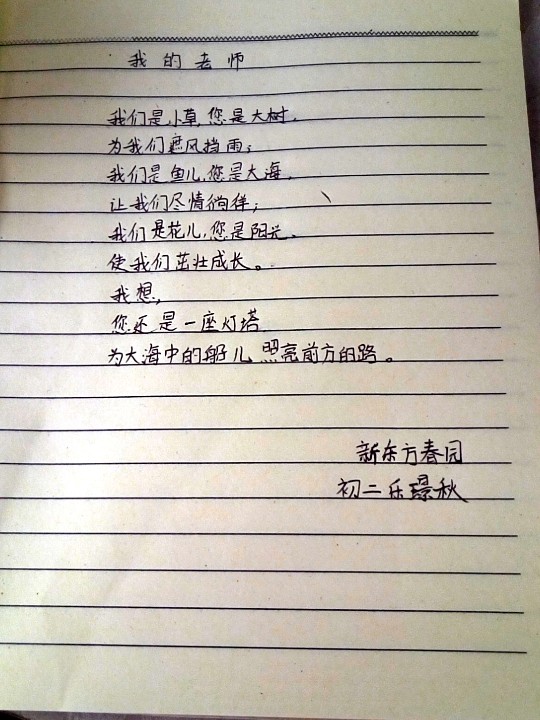 我的老师
我们是小草,您是大树,
为我们遮风挡雨;
我们是鱼儿,您是大海,
让我们尽情徜徉;
我们是花儿,您是阳光,
使我们茁壮成长。
我想,
您还是一座灯塔
为大海中的船儿照亮前方的路。
新东方春园
初二乐璟秋